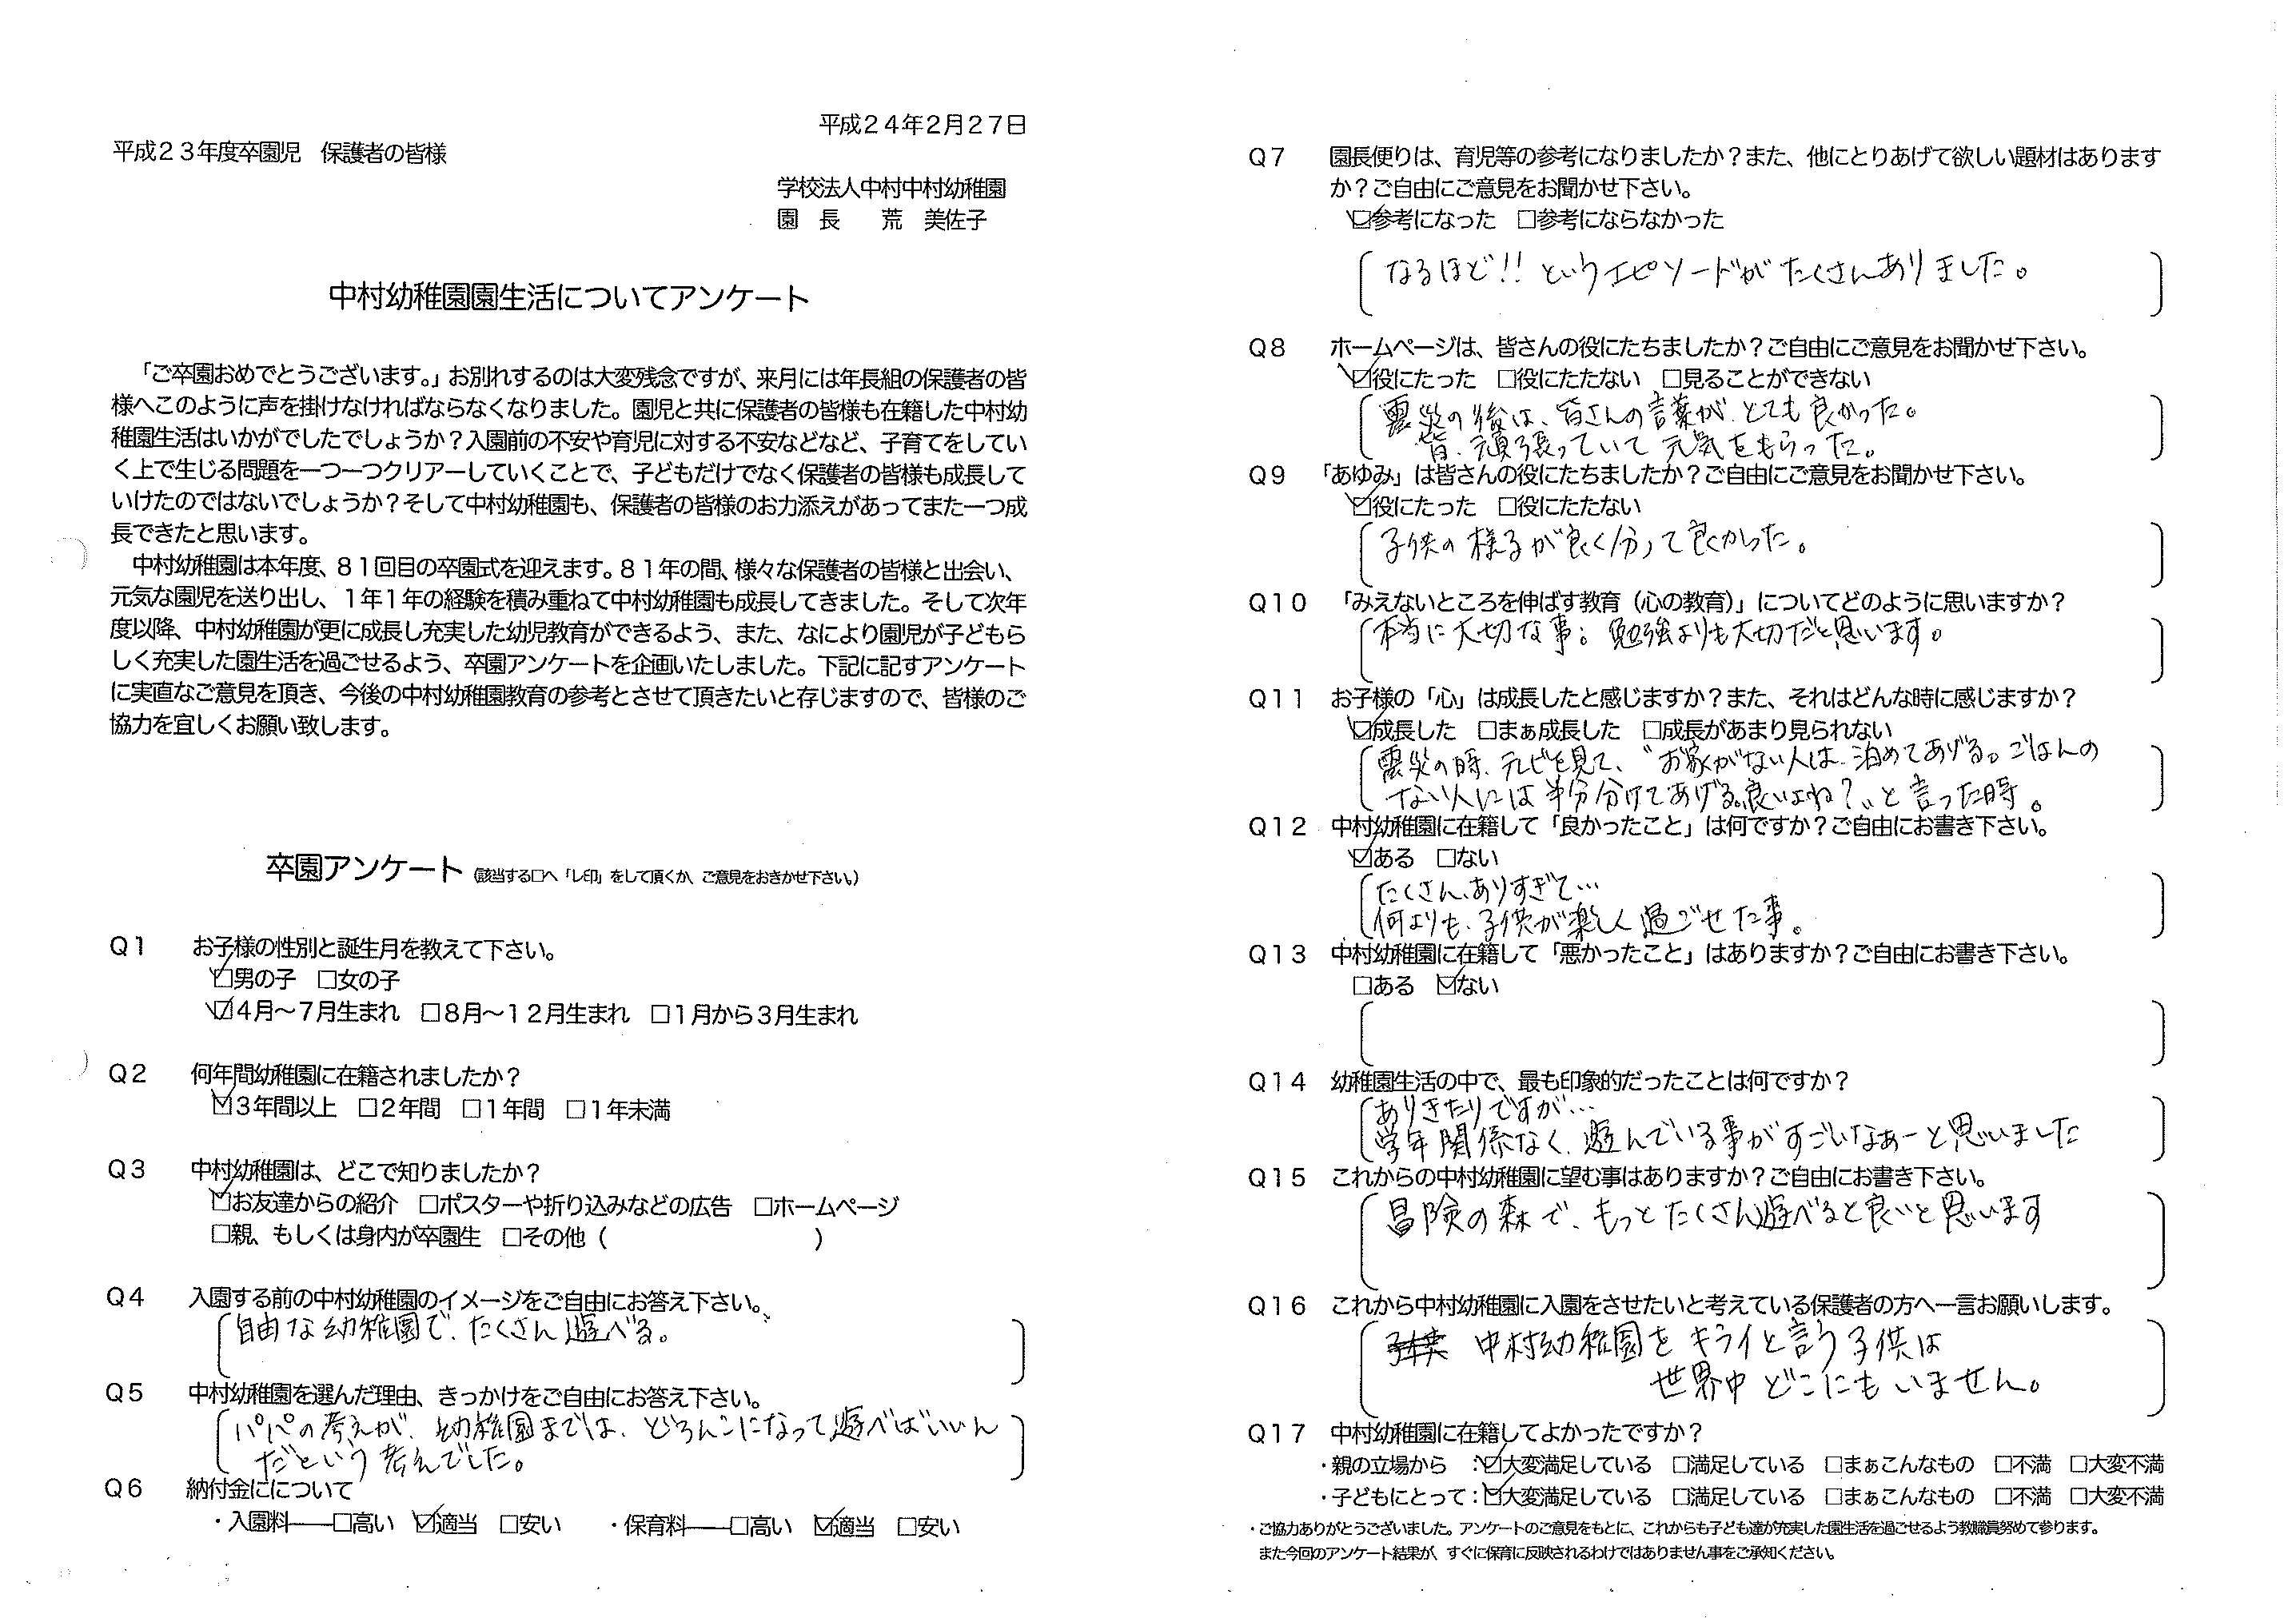 平成24年2月27日
平成23年度卒園児　保護者の皆様
学校法人中村中村幼稚園
園　長　　荒　美佐子
中村幼稚園園生活についてアンケート
「ご卒園おめでとうございます。」お別れするのは大変残念ですが、来月には年長組の保護者の皆
様へこのように声を掛けなければならなくなりました。園児と共に保護者の皆様も在籍した中村幼
稚園生活はいかがでしたでしょうか？入園前の不安や育児に対する不安などなど、子育てをしてい
く上で生じる問題を一つ一つクリアーしていくことで、子どもだけでなく保護者の皆様も成長して
いけたのではないでしょうか？そして中村幼稚園も、保護者の皆様のお力添えがあってまた一つ成
長できたと思います。
中村幼稚園は本年度、81回目の卒園式を迎えます。81年の間、様々な保護者の皆様と出会い、
元気な園児を送り出し、1年1年の経験を積み重ねて中村幼稚園も成長してきました。そして次年
度以降、中村幼稚園が更に成長し充実した幼児教育ができるよう、また、なにより園児が子どもら
しく充実した園生活を過ごせるよう、卒園アンケートを企画いたしました。下記に記すアンケート
に実直なご意見を頂き、今後の中村幼稚園教育の参考とさせて頂きたいと存じますので、皆様のご
協力を宜しくお願い致します。
卒園アンケート（該当する□へ「レ印」をして頂くか、ご意見をおきかせ下さい。）
Q1　お子様の性別と誕生月を教えて下さい。
☑男の子　□女の子
☑4月～7月生まれ　□8月～12月生まれ　□1月から3月生まれ
Q2　何年間幼稚園に在籍されましたか？
☑3年間以上　□2年間　□1年間　□1年未満
Q3　中村幼稚園は、どこで知りましたか？
☑お友達からの紹介　□ポスターや折り込みなどの広告　□ホームページ
□親、もしくは身内が卒園生　□その他（　　　　　　　　　　）
Q4　入園する前の中村幼稚園のイメージをご自由にお答え下さい。
自由な幼稚園で、たくさん遊べる。
Q5　中村幼稚園を選んだ理由、きっかけをご自由にお答え下さい。
パパの考えが、幼稚園までは、どろんこになって遊べばいいん
だという考えでした。
Q6　納付金にについて
・入園料――□高い　☑適当　□安い　　・保育料――□高い　☑適当　□安い
Q7　園長便りは、育児等の参考になりましたか？また、他にとりあげて欲しい題材はあります
か？ご自由にご意見をお聞かせ下さい。
☑参考になった　□参考にならなかった
なるほど!!というエピソードがたくさんありました。
Q8　ホームページは、皆さんの役にたちましたか？ご自由にご意見をお聞かせ下さい。
☑役にたった　□役にたたない　□見ることができない
震災の後は、皆さんの言葉が、とても良かった。
皆、頑張っていて元気をもらった。
Q9　「あゆみ」は皆さんの役にたちましたか？ご自由にご意見をお聞かせ下さい。
☑役にたった　□役にたたない
子供の様子が良く分って良かった。
Q10　「みえないところを伸ばす教育（心の教育）」についてどのように思いますか？
本当に大切な事。勉強よりも大切だと思います。
Q11　お子様の「心」は成長したと感じますか？また、それはどんな時に感じますか？
☑成長した　□まぁ成長した　□成長があまり見られない
震災の時、テレビを見て、〝お家がない人は、泊めてあげる。ごはんの
ない人には半分分けてあげる。良いよね？〟と言った時。
Q12　中村幼稚園に在籍して「良かったこと」は何ですか？ご自由にお書き下さい。
☑ある　□ない
たくさん、ありすぎて…
何よりも、子供が楽しく過ごせた事。
Q13　中村幼稚園に在籍して「悪かったこと」はありますか？ご自由にお書き下さい。
□ある　☑ない
Q14　幼稚園生活の中で、最も印象的だったことは何ですか？
ありきたりですが…
学年関係なく、遊んでいる事がすごいなぁーと思いました
Q15　これからの中村幼稚園に望む事はありますか？ご自由にお書き下さい。
冒険の森で、もっとたくさん遊べると良いと思います
Q16　これから中村幼稚園に入園をさせたいと考えている保護者の方へ一言お願いします。
中村幼稚園をキライと言う子供は
世界中どこにもいません。
Q17　中村幼稚園に在籍してよかったですか？
・親の立場から　：☑大変満足している　□満足している　□まぁこんなもの　□不満　□大変不満
・子どもにとって：☑大変満足している　□満足している　□まぁこんなもの　□不満　□大変不満
・ご協力ありがとうございました。アンケートのご意見をもとに、これからも子ども達が充実した園生活を過ごせるよう教職員努めて参ります。
また今回のアンケート結果が、すぐに保育に反映されるわけではありません事をご承知ください。